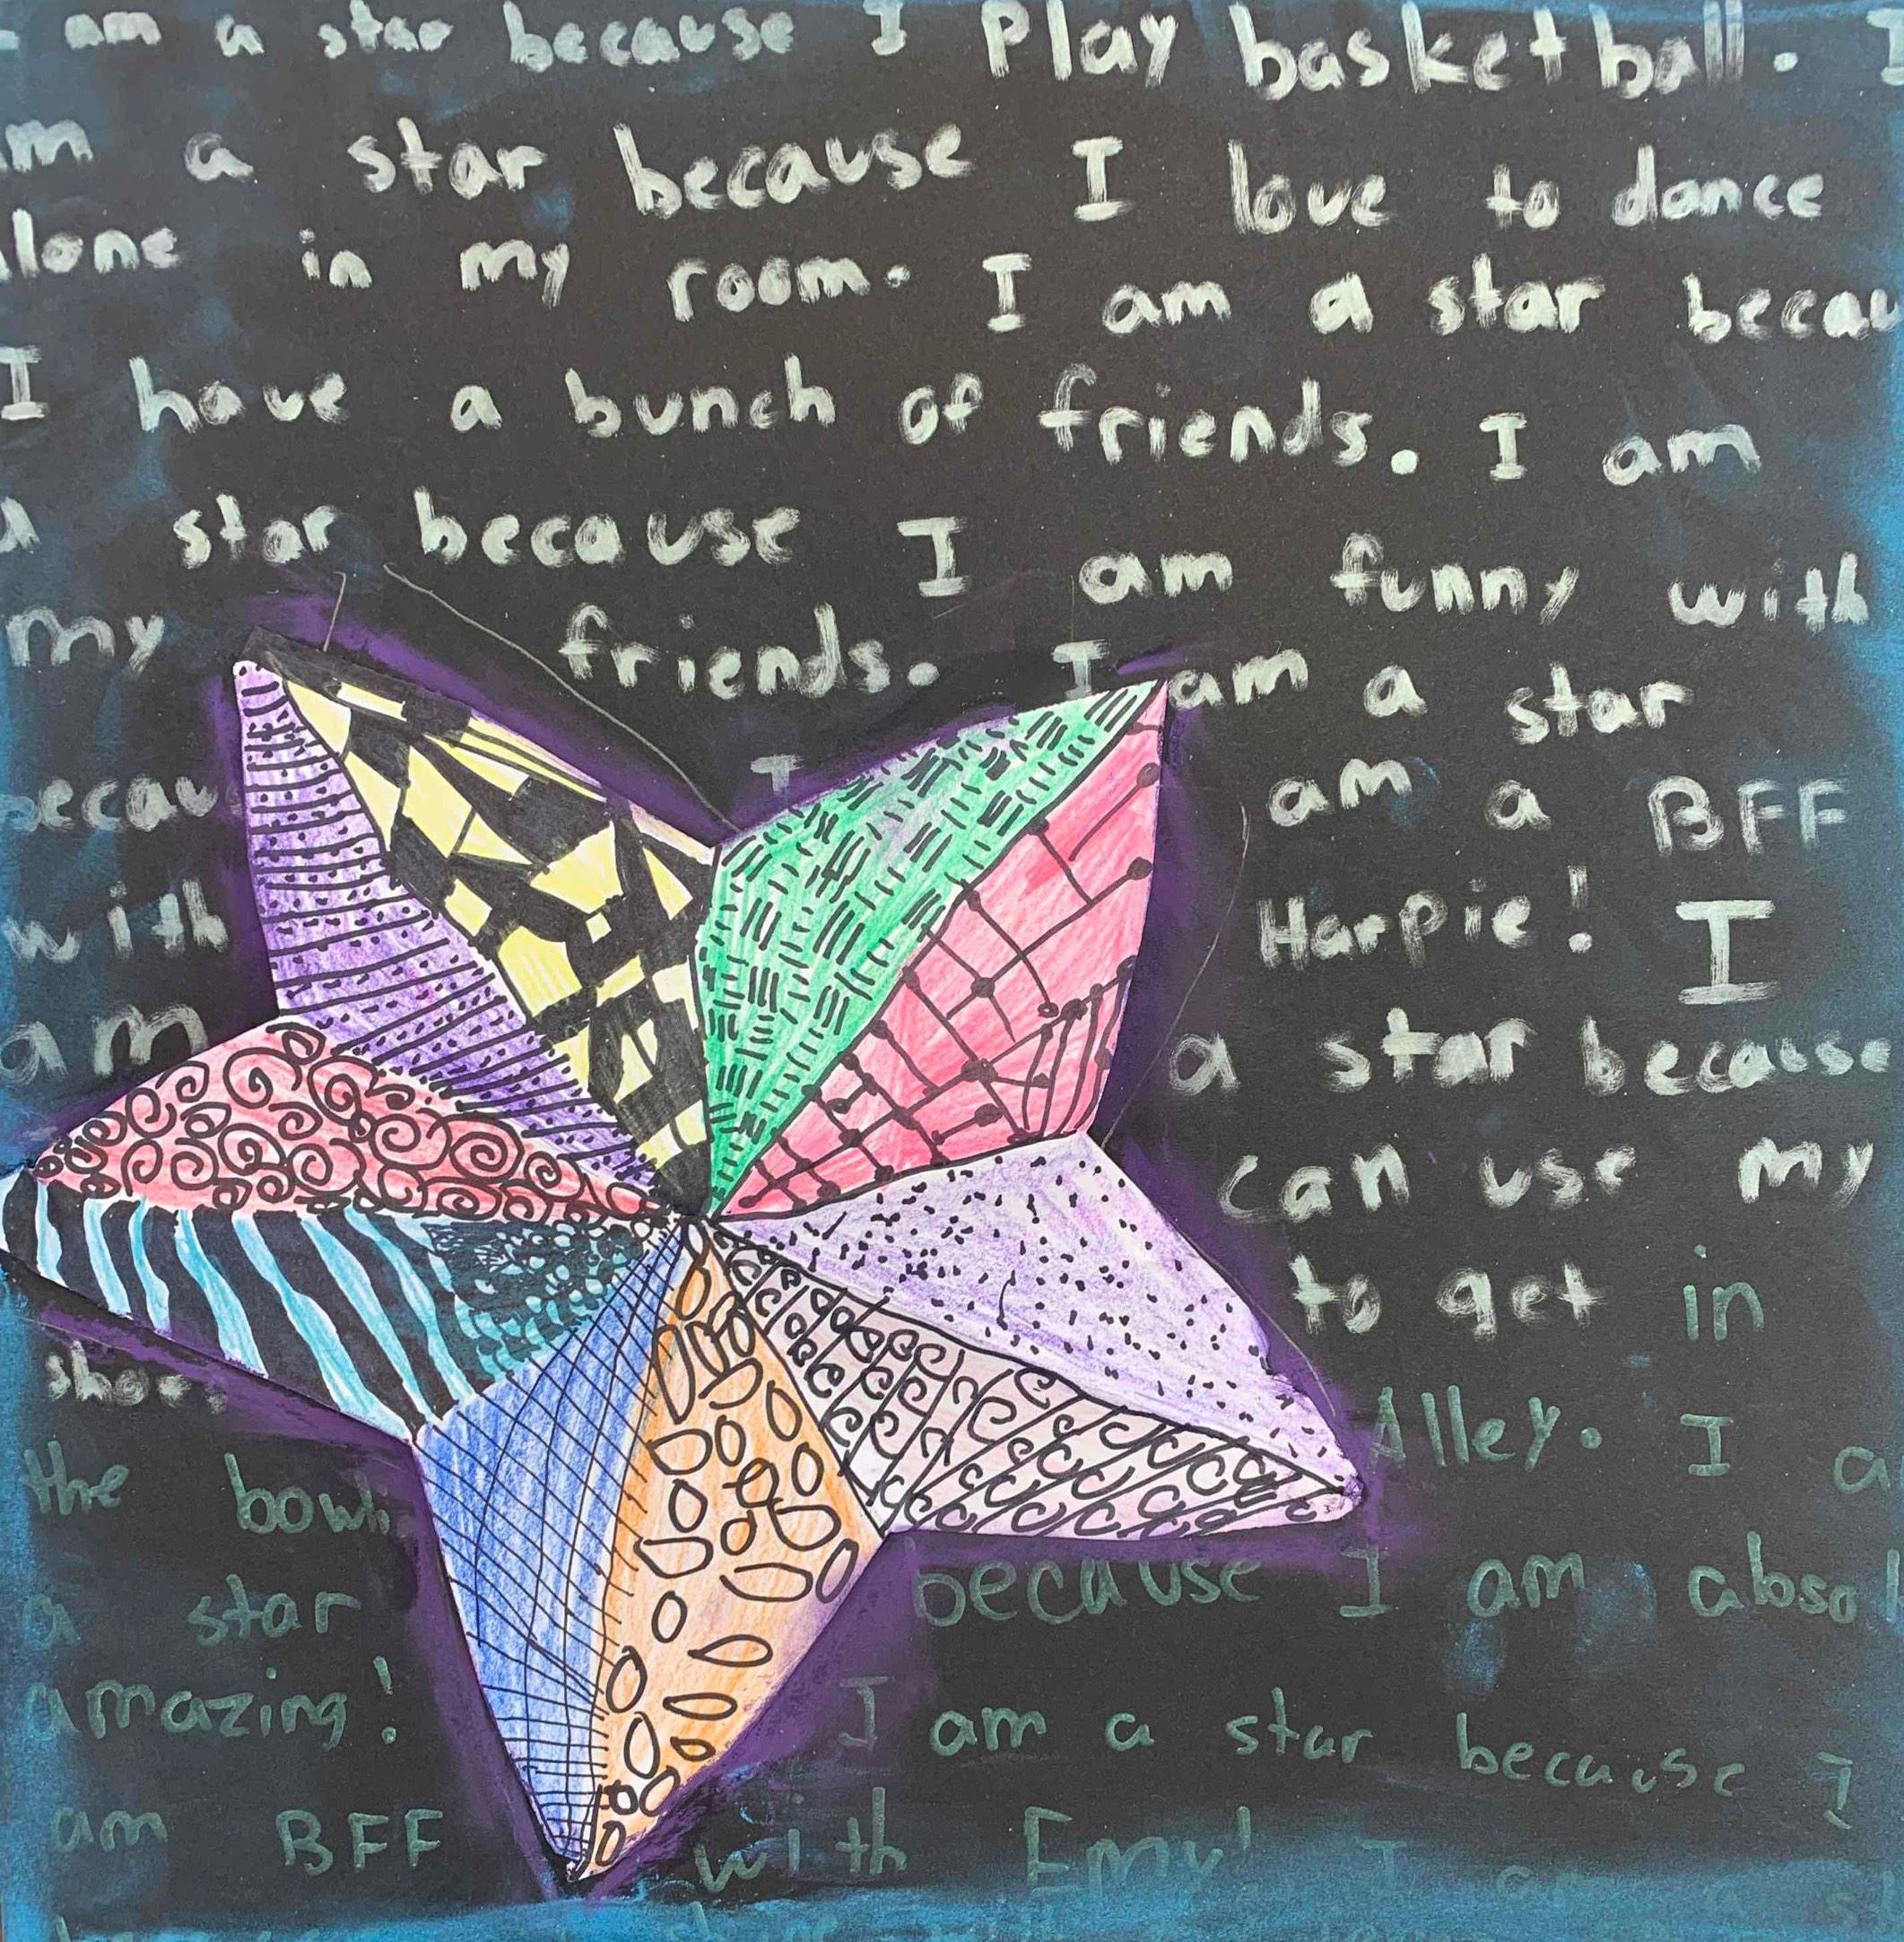 am a star because I Play basketball. I
am a star because I love to dance
alone in my room. I am a star becau
I have a bunch of friends. I am
a star because I am funny with
my friends. I am a star
becau I am a BFF
with Harpie! I
am a star because
can use my
to get in
shoes
the bowl Alley. I a
a star because I am absol
amazing! I am a star because I
am BFF with Emy! I am a